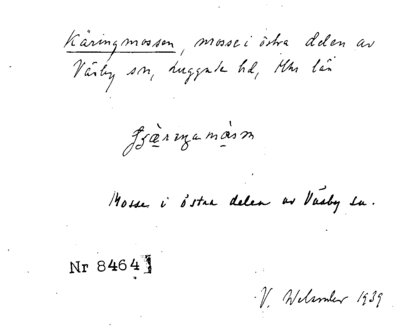 Käringmossen, mosse i östra delen av
Väsby sn, Luggude hd, Mhs län
Mosse i östra delen av Väsby sn.
Nr 8464
V. 1939